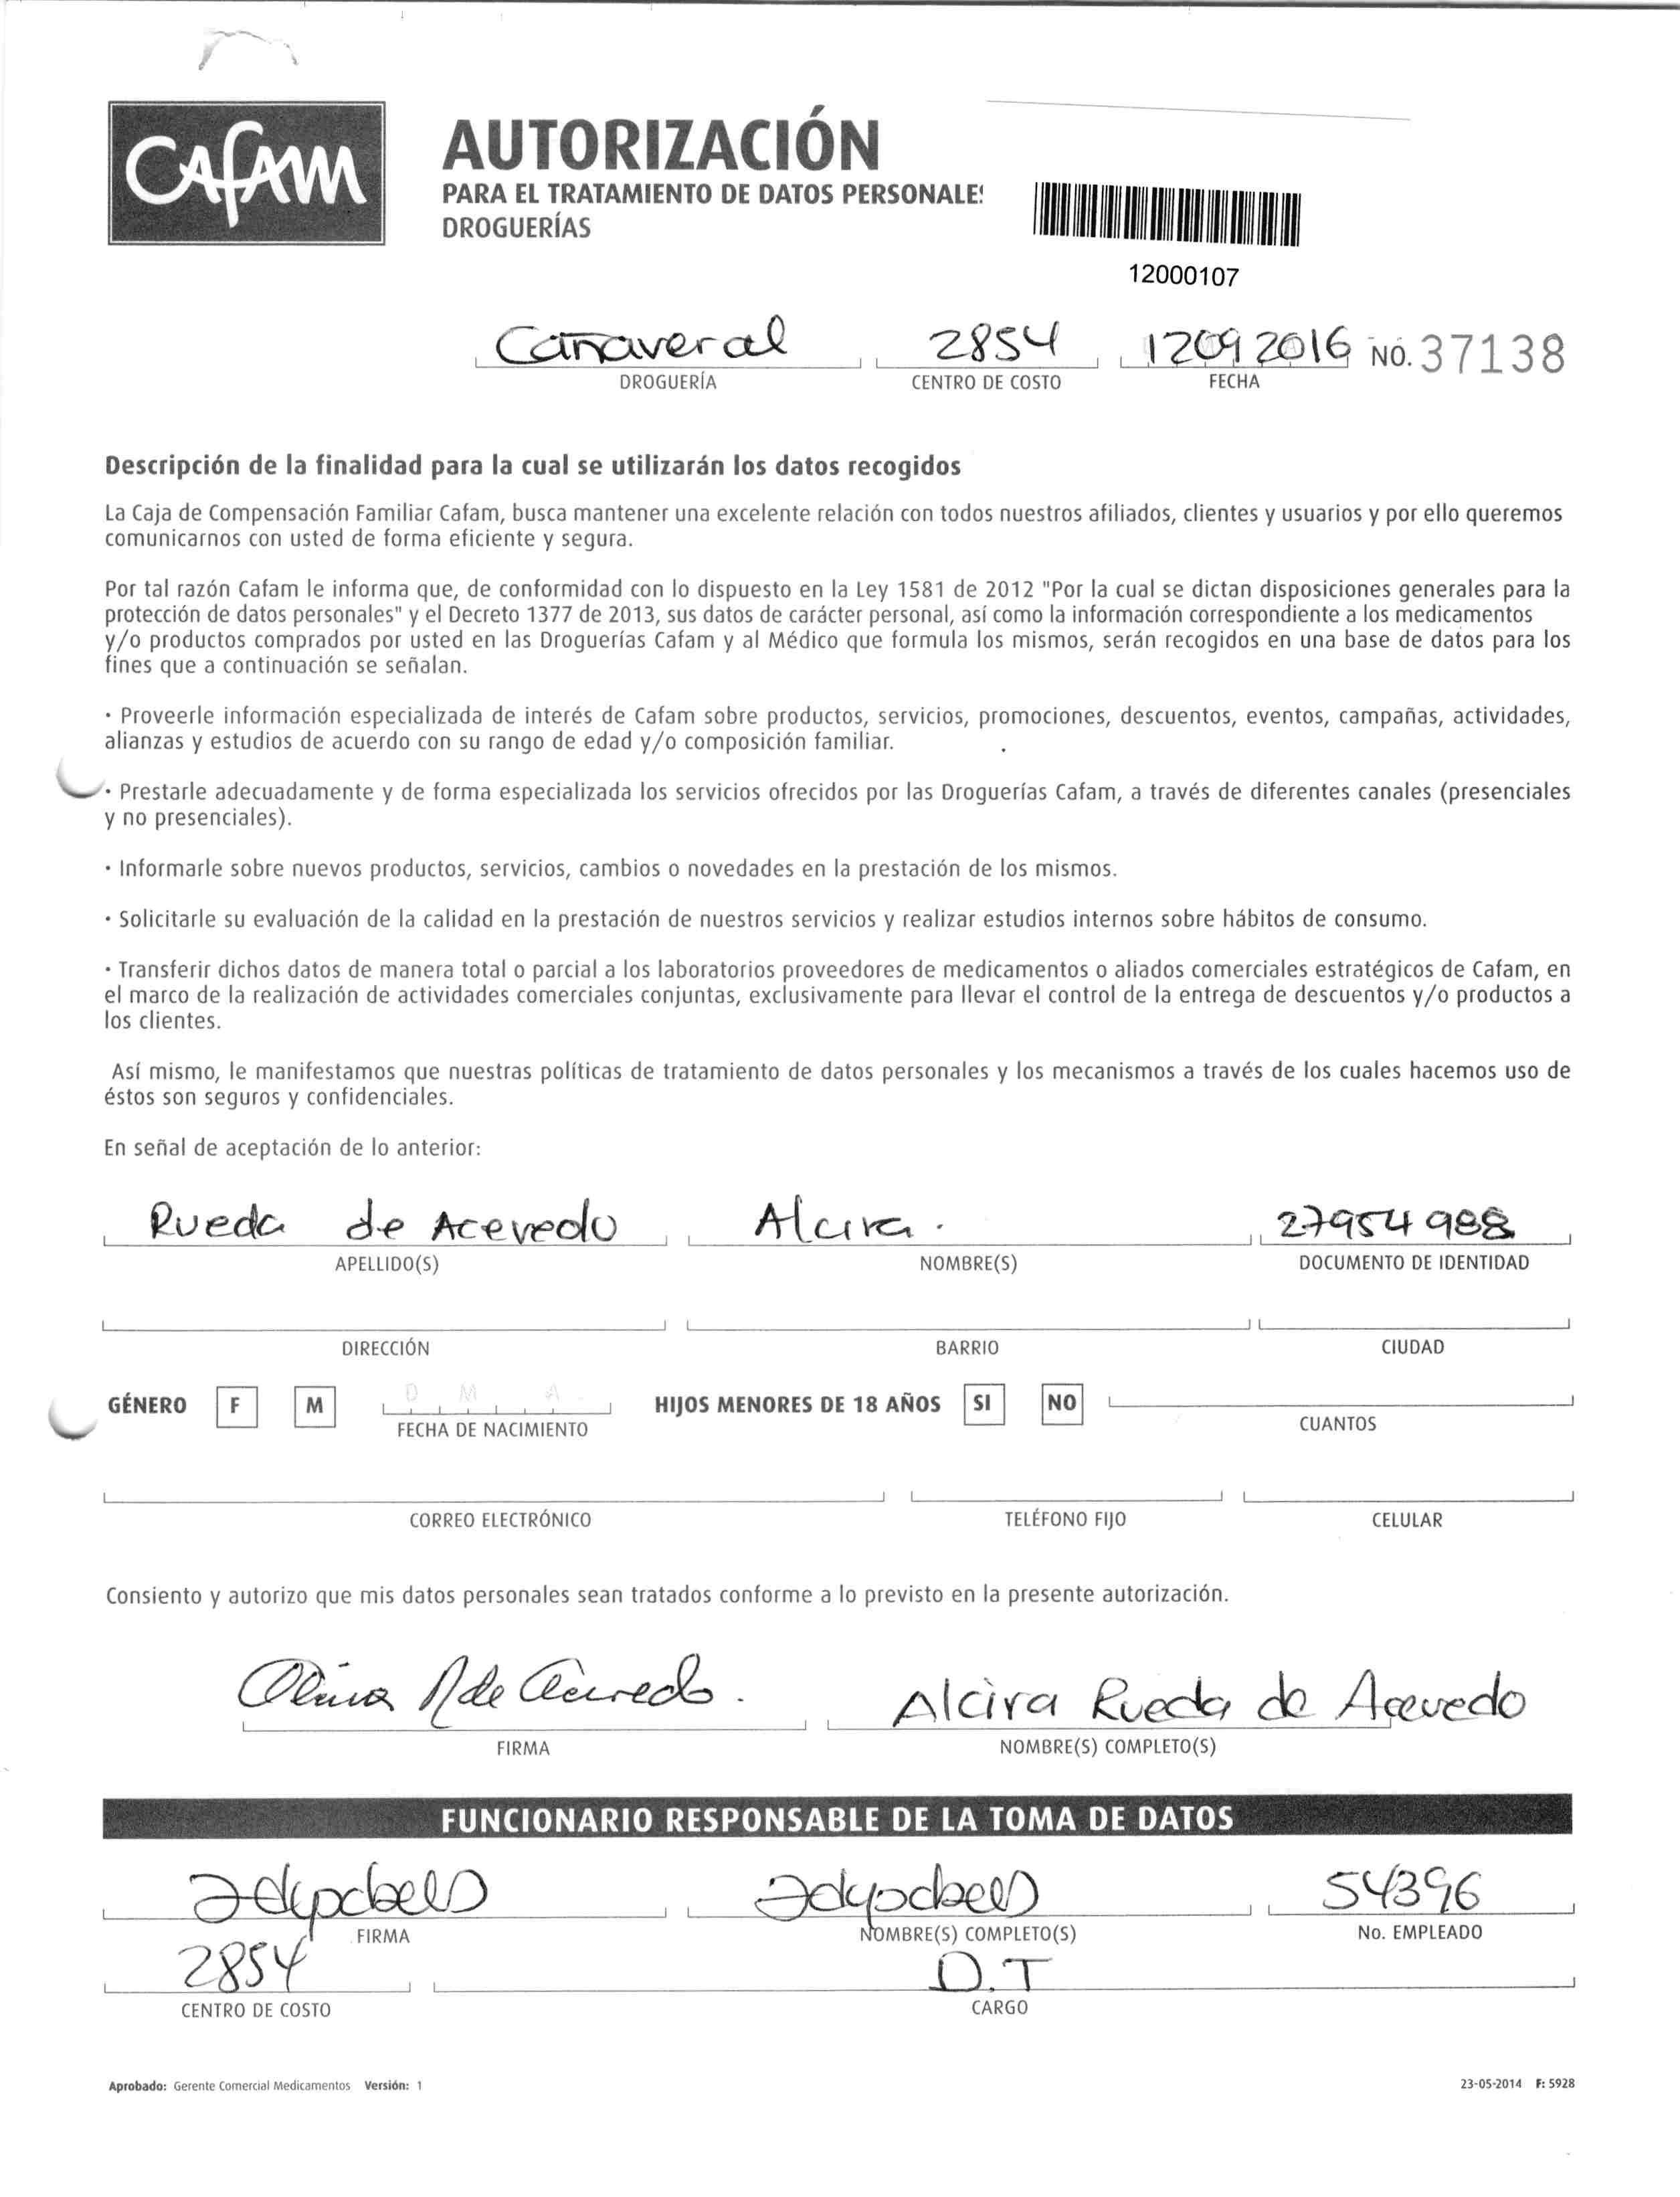 Cafam
AUTORIZACIÓN
PARA EL TRATAMIENTO DE DATOS PERSONALE
DROGUERÍAS
12000107
Cañaveral 2854 12092016 NO. 37138
DROGUERÍA CENTRO DE COSTO FECHA
Descripción de la finalidad para la cual se utilizarán los datos recogidos
La Caja de Compensación Familiar Cafam, busca mantener una excelente relación con todos nuestros afiliados, clientes y usuarios y por ello queremos
comunicarnos con usted de forma eficiente y segura.
Por tal razón Cafam le informa que, de conformidad con lo dispuesto en la Ley 1581 de 2012 "Por la cual se dictan disposiciones generales para la
protección de datos personales" y el Decreto 1377 de 2013, sus datos de carácter personal, así como la información correspondiente a los medicamentos
y/o productos comprados por usted en las Droguerías Cafam y al Médico que formula los mismos, serán recogidos en una base de datos para los
fines que a continuación se señalan.
• Proveerle información especializada de interés de Cafam sobre productos, servicios, promociones, descuentos, eventos, campañas, actividades,
alianzas y estudios de acuerdo con su rango de edad y/o composición familiar.
• Prestarle adecuadamente y de forma especializada los servicios ofrecidos por las Droguerías Cafam, a través de diferentes canales (presenciales
y no presenciales).
• Informarle sobre nuevos productos, servicios, cambios o novedades en la prestación de los mismos.
• Solicitarle su evaluación de la calidad en la prestación de nuestros servicios y realizar estudios internos sobre hábitos de consumo.
• Transferir dichos datos de manera total o parcial a los laboratorios proveedores de medicamentos o aliados comerciales estratégicos de Cafam, en
el marco de la realización de actividades comerciales conjuntas, exclusivamente para llevar el control de la entrega de descuentos y/o productos a
los clientes.
Así mismo, le manifestamos que nuestras políticas de tratamiento de datos personales y los mecanismos a través de los cuales hacemos uso de
éstos son seguros y confidenciales.
En señal de aceptación de lo anterior:
Rueda de Acevedo Alcira. 27954988
APELLIDO(S) NOMBRE(S) DOCUMENTO DE IDENTIDAD
DIRECCIÓN BARRIO CIUDAD
GÉNERO F M D M A HIJOS MENORES DE 18 AÑOS SI NO
FECHA DE NACIMIENTO CUANTOS
CORREO ELECTRÓNICO TELÉFONO FIJO CELULAR
Consiento y autorizo que mis datos personales sean tratados conforme a lo previsto en la presente autorización.
de Alcira Rueda de Acevedo
FIRMA NOMBRE(S) COMPLETO(S)
FUNCIONARIO RESPONSABLE DE LA TOMA DE DATOS
54396
FIRMA NOMBRE(S) COMPLETO(S) No. EMPLEADO
2854 D.T
CENTRO DE COSTO CARGO
Aprobado: Gerente Comercial Medicamentos Versión: 1 23-05-2014 F: 5928